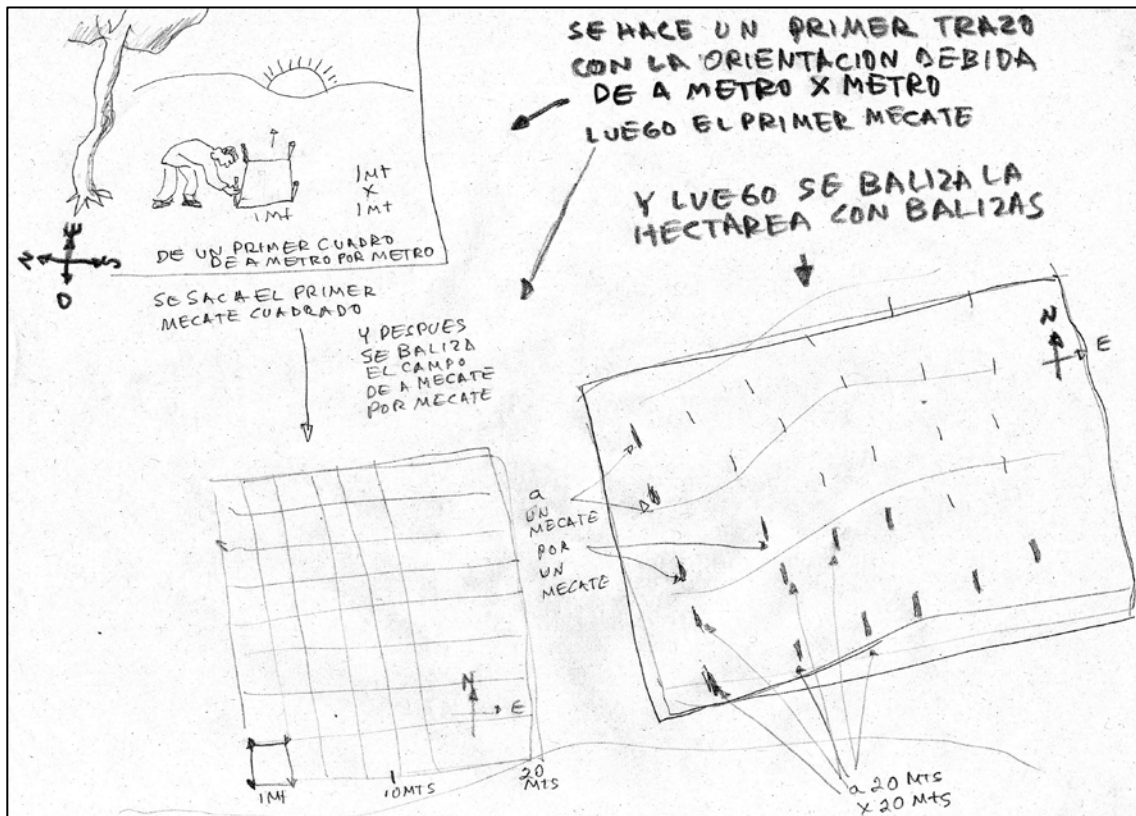 SE HACE UN PRIMER TRAZO
CON LA ORIENTACION DEBIDA
DE A METRO X METRO
LUEGO EL PRIMER MECATE
Y LUEGO SE BALIZA LA
HECTAREA CON BALIZAS
1Mt
X
1Mt
1Mt
DE UN PRIMER CUADRO
DE A METRO POR METRO
E
N
S
O
SE SACA EL PRIMER
MECATE CUADRADO
Y DESPUES
SE BALIZA
EL CAMPO
DE A MECATE
POR MECATE
N
E
a
UN
MECATE
POR
UN
MECATE
N
E
1Mt
10MTS
20
MTS
a 20 MTS
X 20 MTS